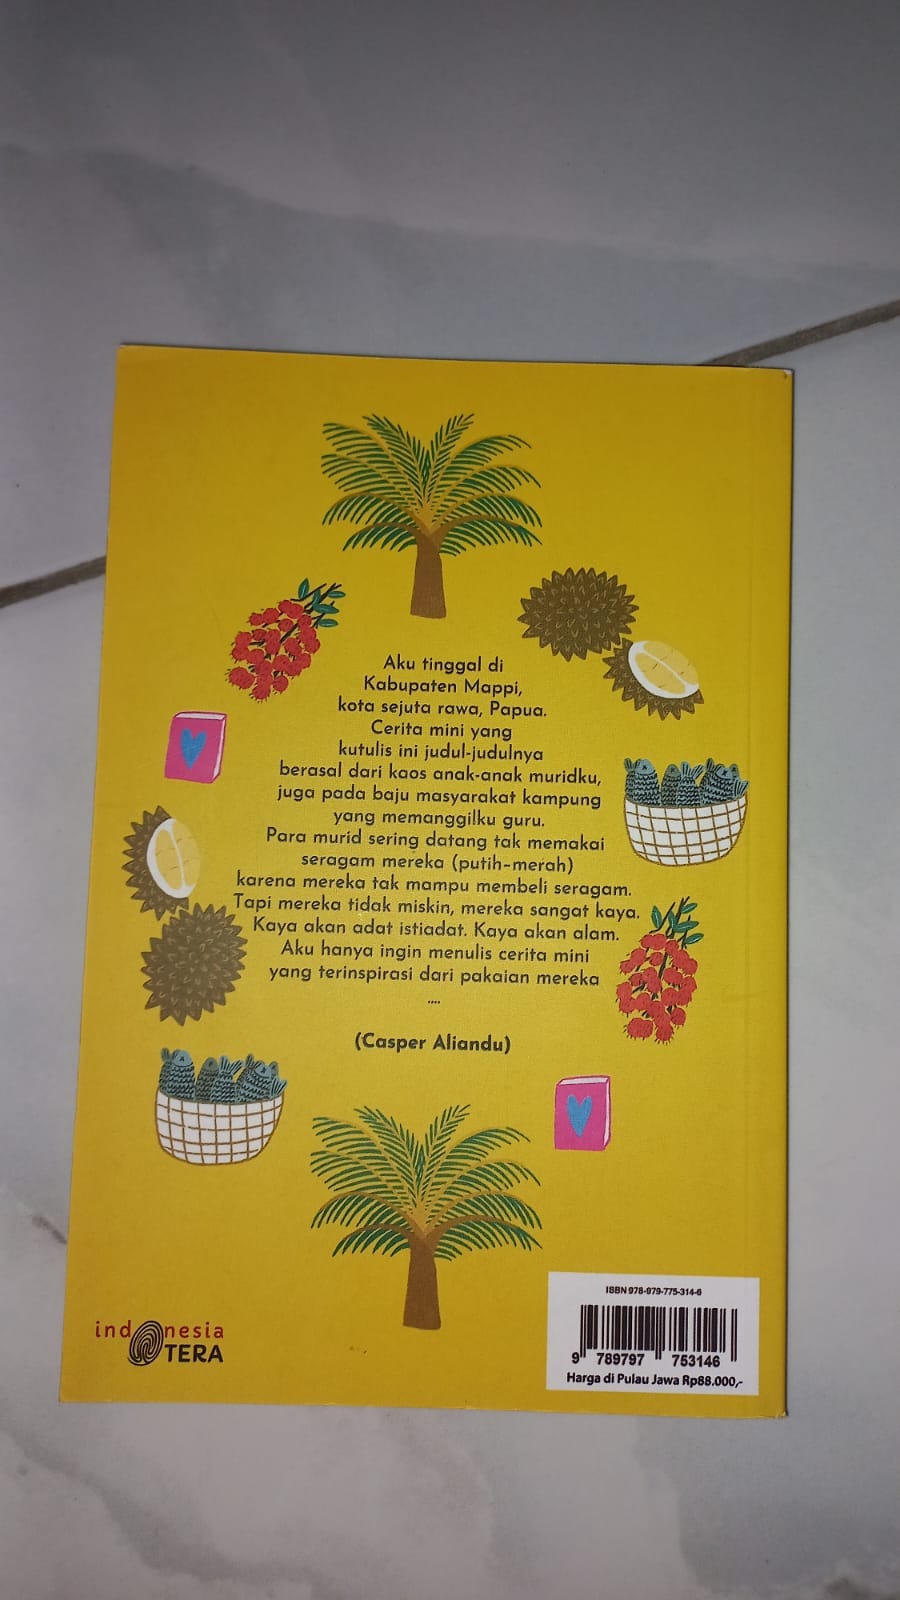 Aku tinggal di
Kabupaten Mappi,
kota sejuta rawa, Papua.
Cerita mini yang
kutulis ini judul-judulnya
berasal dari kaos anak-anak muridku,
juga pada baju masyarakat kampung
yang memanggilku guru.
Para murid sering datang tak memakai
seragam mereka (putih-merah)
karena mereka tak mampu membeli seragam.
Tapi mereka tidak miskin, mereka sangat kaya.
Kaya akan adat istiadat. Kaya akan alam.
Aku hanya ingin menulis cerita mini
yang terinspirasi dari pakaian mereka
....
(Casper Aliandu)
indonesia
TERA
ISBN 978-979-775-314-6
9 789797 753146
Harga di Pulau Jawa Rp88.000,-